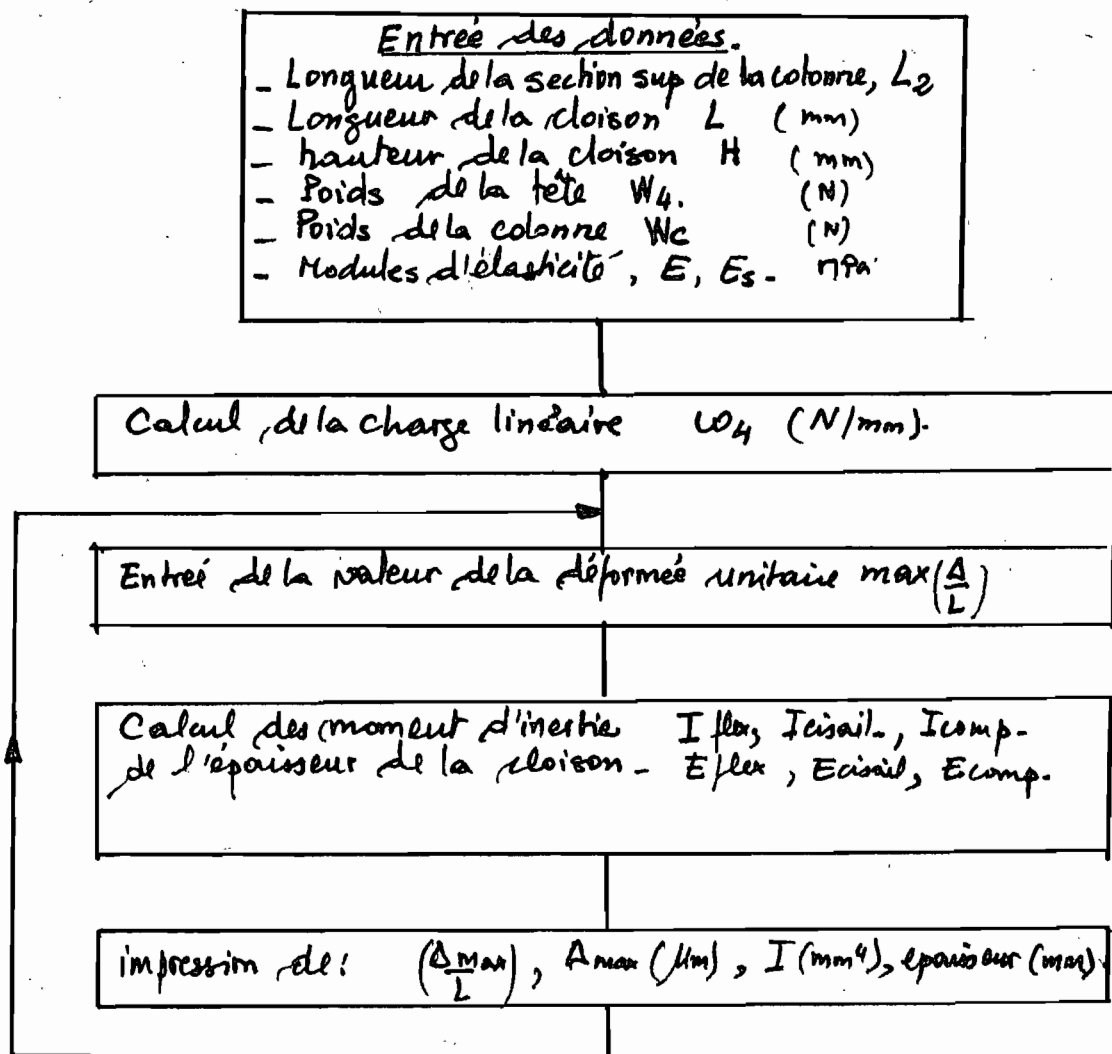 Entreé des données.
- Longueur de la section sup de la colonne, L2
- Longueur de la cloison L (mm)
- hauteur de la cloison H (mm)
- Poids de la tête W4. (N)
- Poids de la colonne Wc (N)
- Modules d'élasticité, E, Es - MPa
Calcul de la charge linéaire ω4 (N/mm).
Entreé de la valeur de la déformeé unitaire max(Δ/L)
Calcul des moment d'inertie I flex, Icisail., Icomp.
de l'épaisseur de la cloison - E flex, Ecisail, Ecomp.
impression de: (Δmax/L), Δmax (μm), I (mm4), epaisseur (mm).